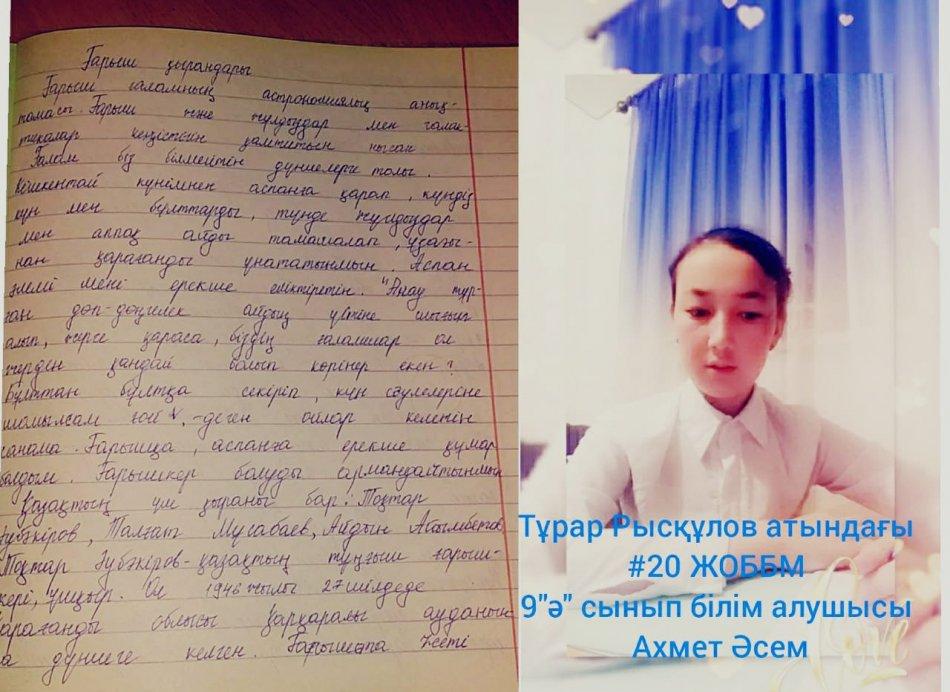 Ғарыш қырандары
Ғарыш ғаламның астрономиялық анық-
тамасы. Ғарыш және жұлдыздар мен галак-
тикалар кеңістігін қамтитын нысан
Ғалам біз білмейтін дүниелерге толы.
Кішкентай күнімнен аспанға қарап, күндіз
күн мен бұлттарды, түнде жұлдыздар
мен аппақ айды тамашалап, ұзағы-
нан қарағанды ұнататынмын. Аспан
әлемі мені ерекше еліктіретін. "Анау тұр-
ған дөп-дөңгелек айдың үстіне шығып
алып, жерге қараса, біздің ғаламшар ол
жерден қандай болып көрінер екен?
Бұлттан бұлтқа секіріп, күн сәулелеріне
шомылсам ғой", -деген ойлар келетін
санама. Ғарышқа, аспанға ерекше құмар
болдым. Ғарышкер болуды армандайтынмын
Қазақтың үш қыраны бар: Тоқтар
Әубәкіров, Талғат Мұсабаев, Айдын Айымбетов
Тоқтар Әубәкіров-қазақтың тұңғыш ғарыш-
кері, ұшқыш. Ол 1946 жылы 27 шілдеде
арағанды облысы Қарқаралы ауданын
а дүниеге келген. Ғарышта 7
Тұрар Рысқұлов атындағы
#20 ЖОББМ
9"ә" сынып білім алушысы
Ахмет Әсем